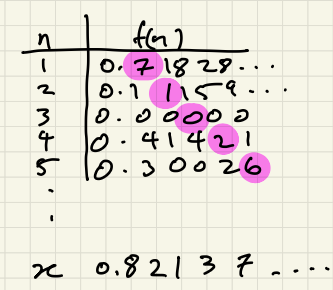 n f(n)
1 0.71828...
2 0.11159...
3 0.00000
4 0.41421
5 0.30026
.
.
x 0.82137....